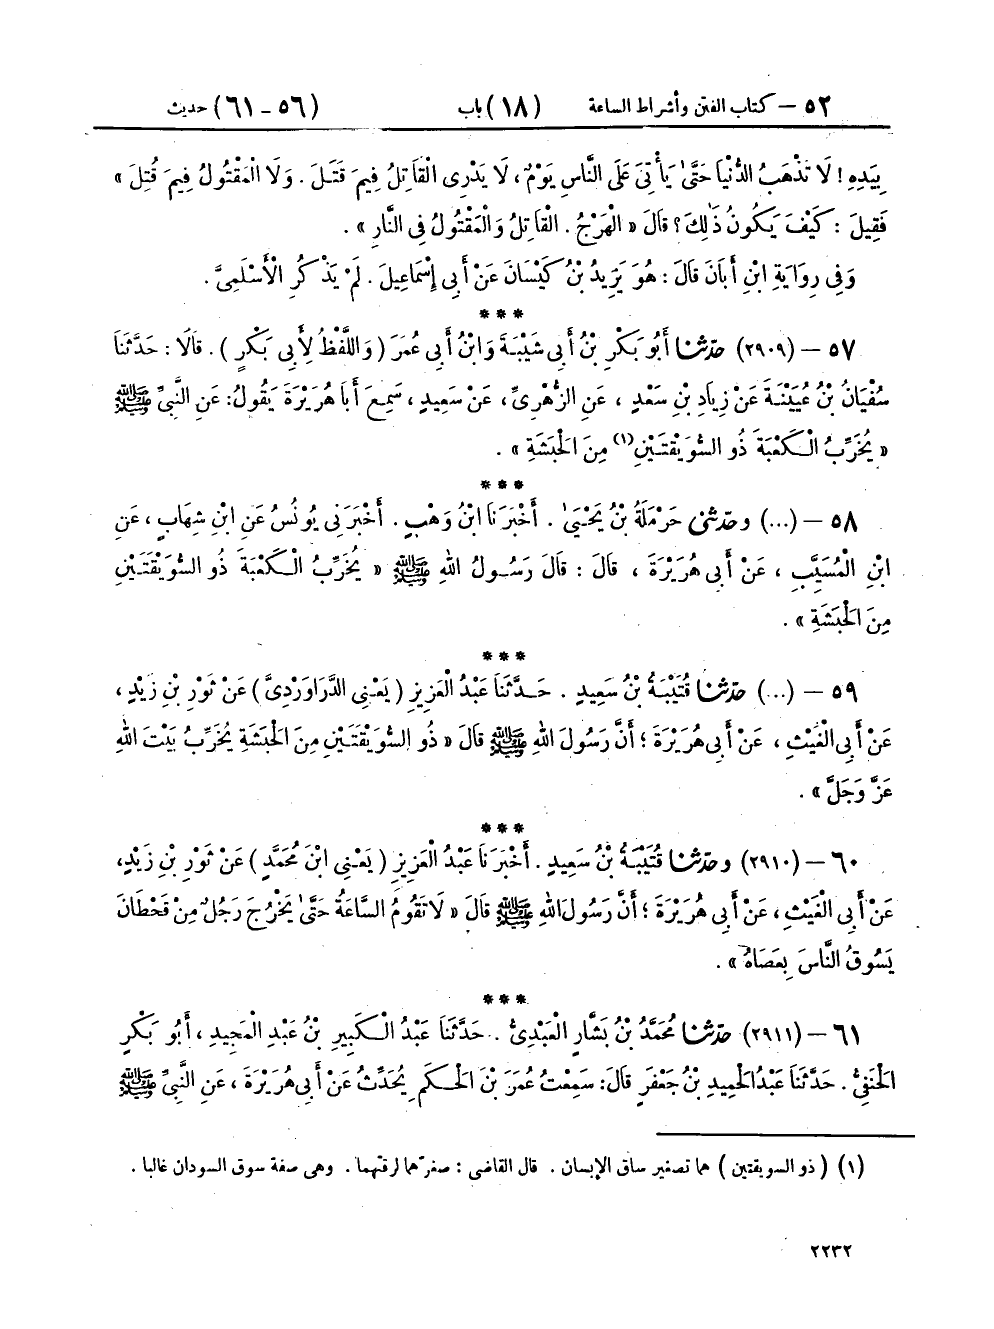 ٥٢ – كتاب الفتن وأشراط الساعة (١٨) باب (٥٦ – ٦١) حديث
بِيَدِهِ! لَا تَذْهَبُ الدُّنْيَا حَتَّىٰ يَأْتِىَ عَلَى النَّاسِ يَوْمٌ، لَا يَدْرِى الْقَاتِلُ فِيمَ قَتَلَ. وَلَا الْمَقْتُولُ فِيمَ قُتِلَ »
فَقِيلَ: كَيْفَ يَكُونُ ذَٰلِكَ؟ قَالَ « الْهَرْجُ. الْقَاتِلُ وَالْمَقْتُولُ فِى النَّارِ ».
وَفِى رِوَايَةِ ابْنِ أَبَانَ قَالَ: هُوَ يَزِيدُ بْنُ كَيْسَانَ عَنْ أَبِى إِسْمَاعِيلَ. لَمْ يَذْكُرِ الْأَسْلَمِىَّ.
***
٥٧ – (٢٩٠٩) حدّثنا أَبُو بَكْرِ بْنُ أَبِى شَيْبَةَ وَابْنُ أَبِى عُمَرَ (وَاللَّفْظُ لِأَبِى بَكْرٍ). قَالَا: حَدَّثَنَا
سُفْيَانُ بْنُ عُيَيْنَةَ عَنْ زِيَادِ بْنِ سَعْدٍ، عَنِ الزُّهْرِىِّ، عَنْ سَعِيدٍ، سَمِعَ أَبَا هُرَيْرَةَ يَقُولُ: عَنِ النَّبِىِّ ﷺ
« يُخَرِّبُ الْكَعْبَةَ ذُو السُّوَيْقَتَيْنِ(١) مِنَ الْحَبَشَةِ ».
***
٥٨ – (...) وحدّثنى حَرْمَلَةُ بْنُ يَحْيَىٰ. أَخْبَرَنَا ابْنُ وَهْبٍ. أَخْبَرَنِى يُونُسُ عَنِ ابْنِ شِهَابٍ، عَنِ
ابْنِ الْمُسَيَّبِ، عَنْ أَبِى هُرَيْرَةَ، قَالَ: قَالَ رَسُولُ اللهِ ﷺ « يُخَرِّبُ الْكَعْبَةَ ذُو السُّوَيْقَتَيْنِ
مِنَ الْحَبَشَةِ ».
***
٥٩ – (...) حدّثنا قُتَيْبَةُ بْنُ سَعِيدٍ. حَدَّثَنَا عَبْدُ الْعَزِيزِ (يَعْنِى الدَّرَاوَرْدِىَّ) عَنْ ثَوْرِ بْنِ زَيْدٍ،
عَنْ أَبِى الْغَيْثِ، عَنْ أَبِى هُرَيْرَةَ؛ أَنَّ رَسُولَ اللهِ ﷺ قَالَ « ذُو السُّوَيْقَتَيْنِ مِنَ الْحَبَشَةِ يُخَرِّبُ بَيْتَ اللهِ
عَزَّ وَجَلَّ ».
***
٦٠ – (٢٩١٠) وحدّثنا قُتَيْبَةُ بْنُ سَعِيدٍ. أَخْبَرَنَا عَبْدُ الْعَزِيزِ (يَعْنِى ابْنَ مُحَمَّدٍ) عَنْ ثَوْرِ بْنِ زَيْدٍ،
عَنْ أَبِى الْغَيْثِ، عَنْ أَبِى هُرَيْرَةَ؛ أَنَّ رَسُولَ اللهِ ﷺ قَالَ « لَا تَقُومُ السَّاعَةُ حَتَّىٰ يَخْرُجَ رَجُلٌ مِنْ قَحْطَانَ
يَسُوقُ النَّاسَ بِعَصَاهُ ».
***
٦١ – (٢٩١١) حدّثنا مُحَمَّدُ بْنُ بَشَّارٍ الْعَبْدِىُّ. حَدَّثَنَا عَبْدُ الْكَبِيرِ بْنُ عَبْدِ الْمَجِيدِ، أَبُو بَكْرٍ
الْحَنَفِىُّ. حَدَّثَنَا عَبْدُ الْحَمِيدِ بْنُ جَعْفَرٍ قَالَ: سَمِعْتُ عُمَرَ بْنَ الْحَكَمِ يُحَدِّثُ عَنْ أَبِى هُرَيْرَةَ، عَنِ النَّبِىِّ ﷺ
(١) (ذو السويقتين) هما تصغير ساق الإنسان. قال القاضى: صغرهما لرقتهما. وهى صفة سوق السودان غالبا.
٢٢٣٢